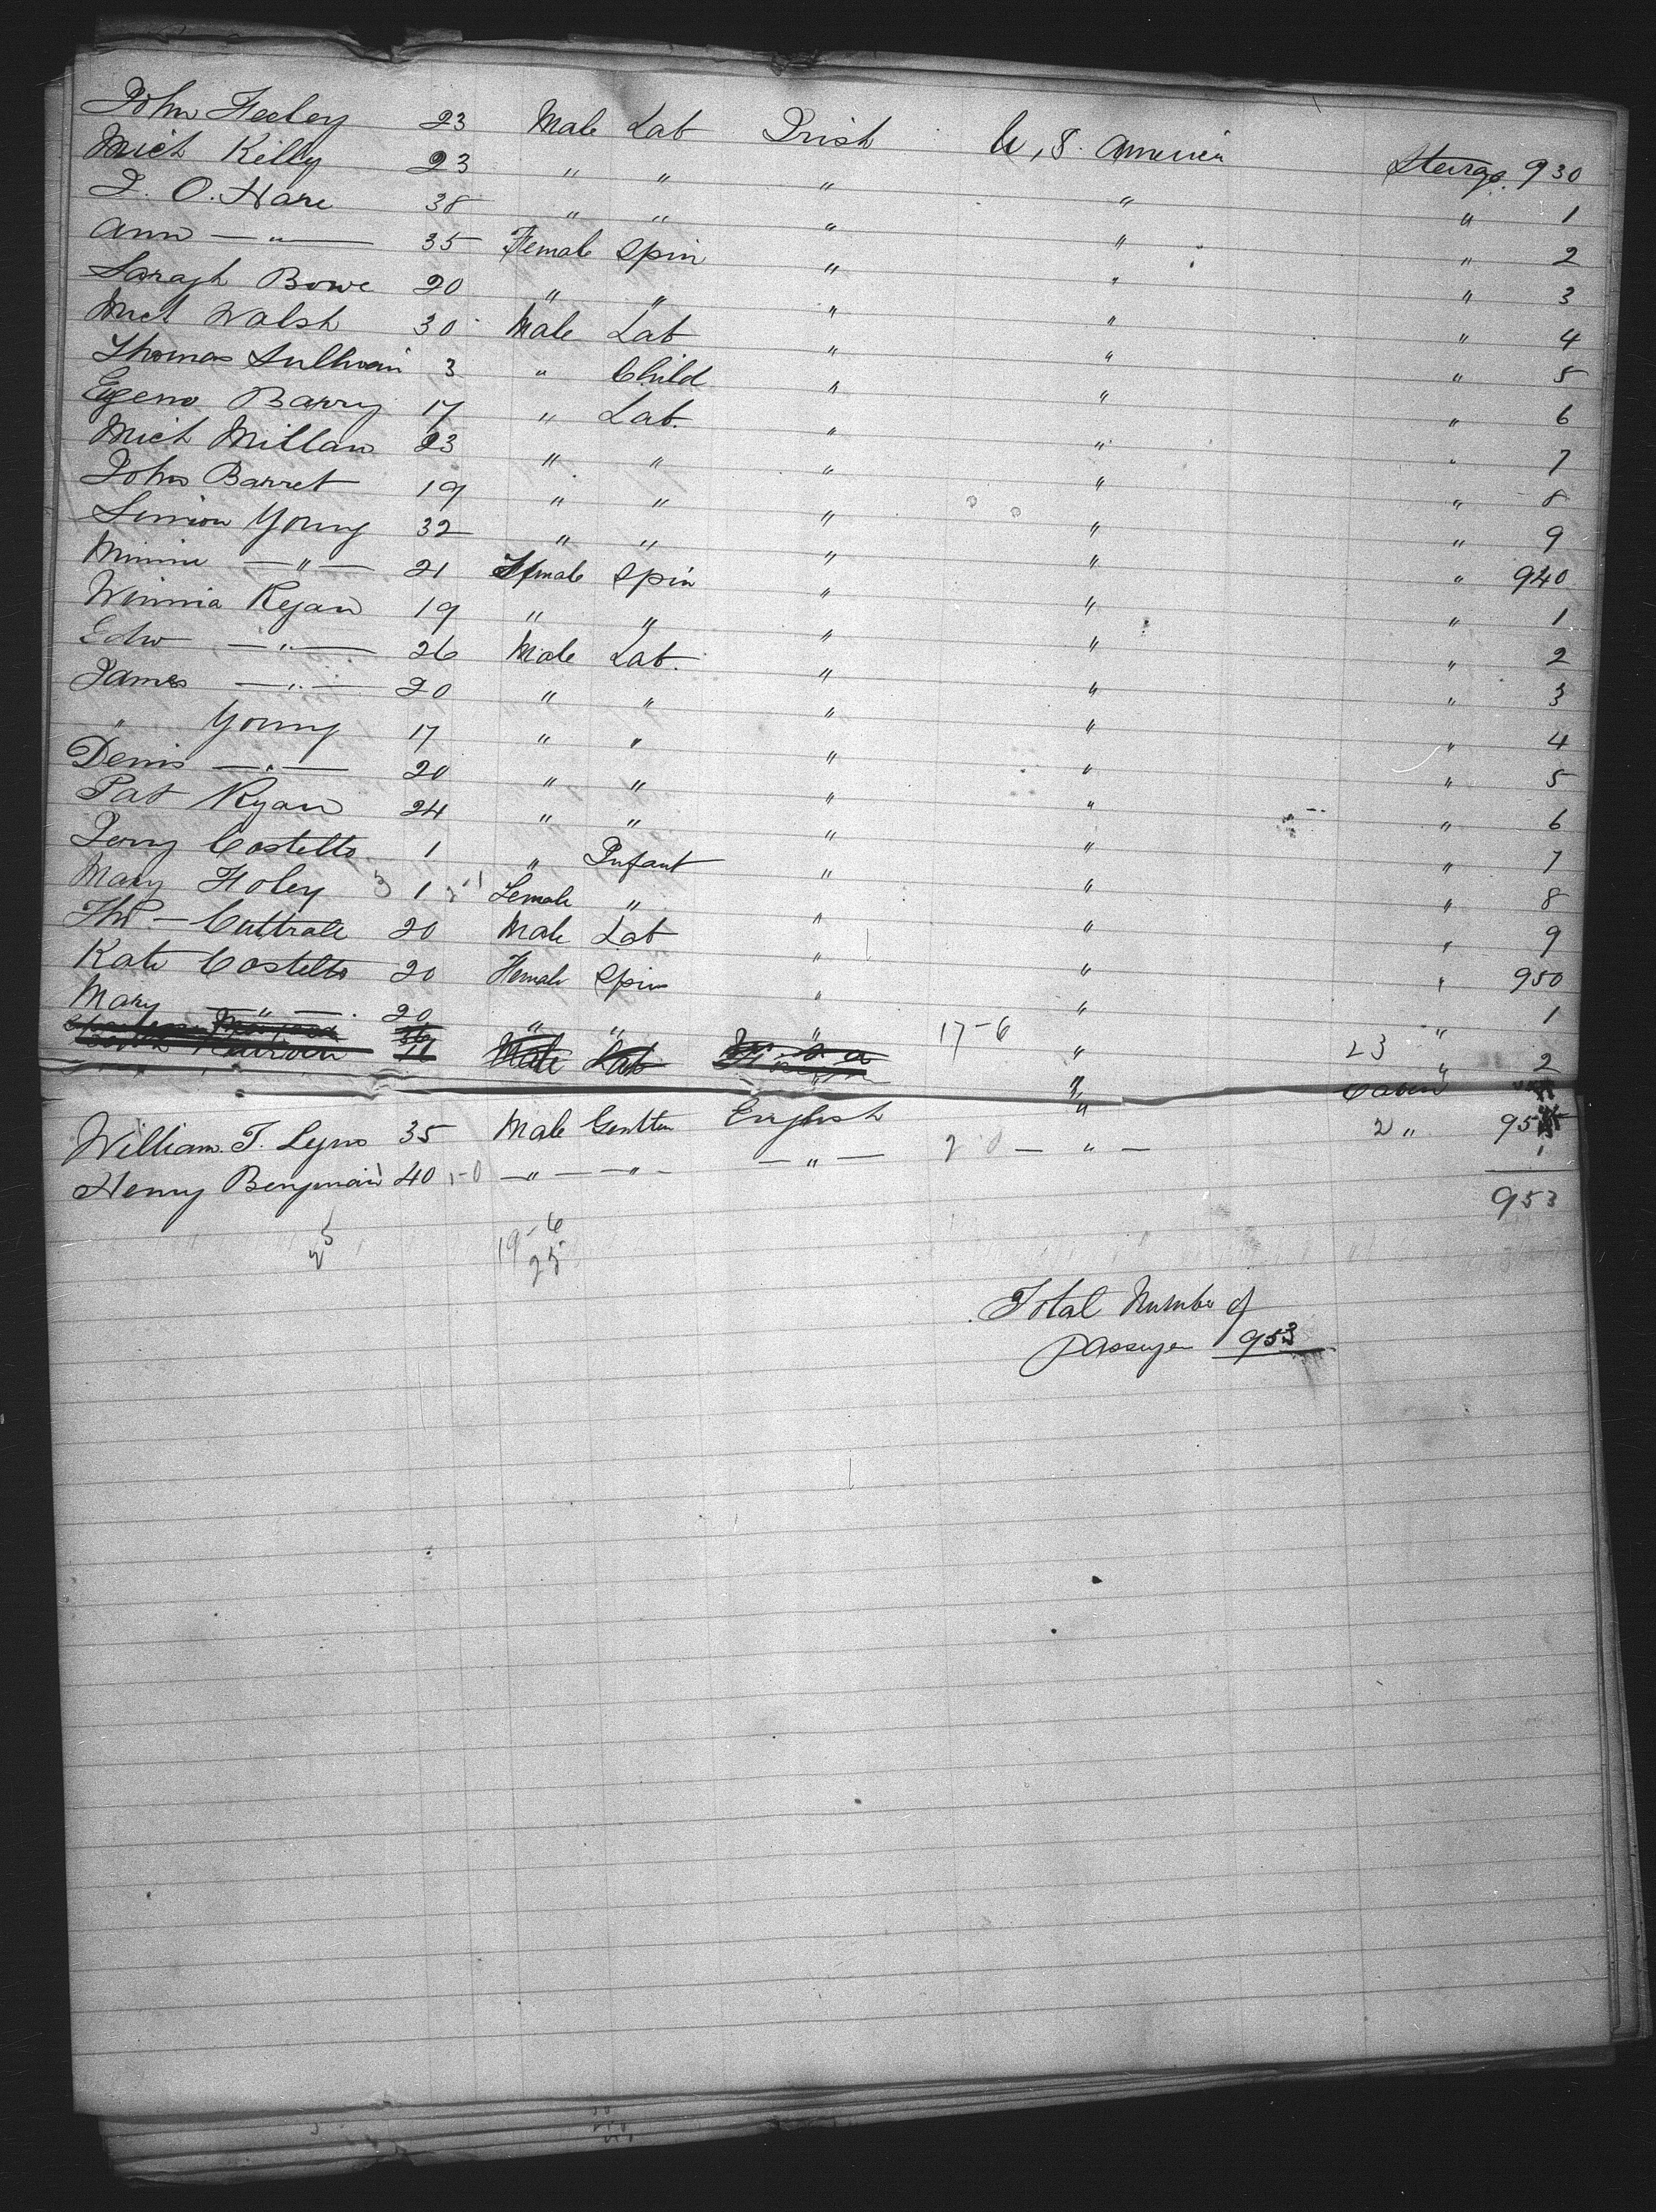 John Feeley 23 Male Lab Irish U, S. America Steerage. 930
Mich Kelly 23 " " " " " 1
J. O. Hare 38 " " " " " 2
Ann — " — 35 Female Spin " " " 3
Saragh Bowe 20 " " " " " 4
Mich Walsh 30 Male Lab " " " 5
Thomas Sullivan 3 " Child " " " 6
Eugene Barry 17 " Lab. " " " 7
Mich Millan 23 " " " " " 8
John Barret 19 " " " " " 9
Simion Young 32 " " " " " 940
Minnie — " — 21 Female Spin " " " 1
Winnia Ryan 19 " " " " " 2
Edw — " — 26 Male Lab. " " " 3
James — " — 20 " " " " " 4
" Young 17 " " " " " 5
Denis — " — 20 " " " " " 6
Pat Ryan 24 " " " " " 7
Costello 1 " Infant " " " 8
Mary Foley 1 Female " " " " 9
Thos. — Cuttrale 20 Male Lab " " " 950
Kate Costello 20 Female Spin " " " 1
Mary — " — . 20 " " " 17-6 " 23 " 2
Male Lab " Cabin
William. T. Lyns 35 Male Gentlm English " 2 " 95
Henry Benjamain 40 1-0 — " — " — — " — 2 0 — " — 1
953
25 19-6
25
Total Number of
passenger 953